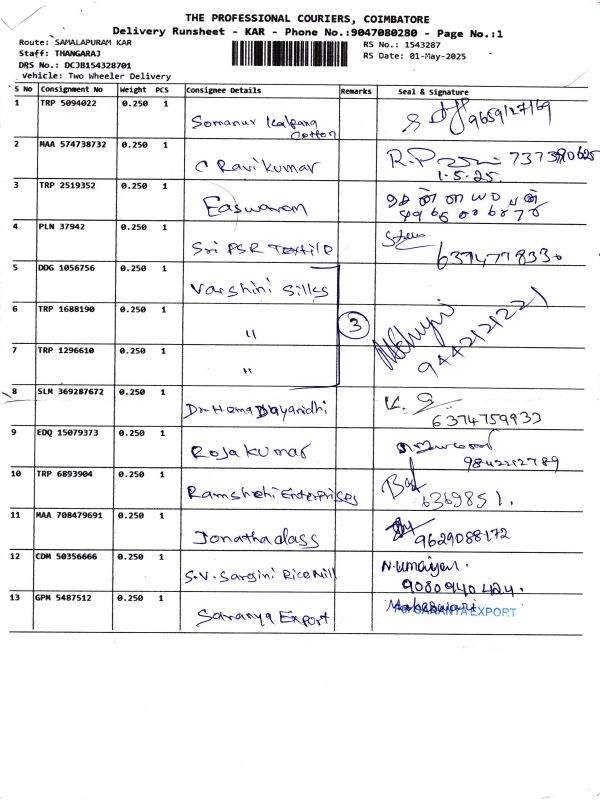 THE PROFESSIONAL COURIERS, COIMBATORE
Delivery Runsheet - KAR - Phone No.:9047080280 - Page No.:1
Route: SAMALAPURAM KAR
Staff: THANGARAJ
DRS No.: DCJB154328701
Vehicle: Two Wheeler Delivery
RS No.: 1543287
RS Date: 01-May-2025
S No Consignment No Weight PCS Consignee Details Remarks Seal & Signature
1 TRP 5094022 0.250 1 Somanur Kalpana Cotton 9659127169
2 MAA 574738732 0.250 1 C Ravikumar R.P
1.5.25
3 TRP 2519352 0.250 1 Easwaran
4 PLN 37942 0.250 1 Sri PSR Textile 6374778330
5 DDG 1056756 0.250 1 Varshini Silks
6 TRP 1688190 0.250 1 " 3 9442121221
7 TRP 1296610 0.250 1 "
8 SLM 369287672 0.250 1 Dr. Hema Dayanidhi K. G
6374759933
9 EDQ 15079373 0.250 1 Rojakumar
9842212789
10 TRP 6893904 0.250 1 Ramshethi Enterprises
6369851.
11 MAA 708479691 0.250 1 Jonathadass 9629088172
12 CDM 50356666 0.250 1 S.V. Sargini Rice Mill N.Umaiyal.
9080940424.
13 GPM 5487512 0.250 1 Saranya Export
For SARANYA EXPORT